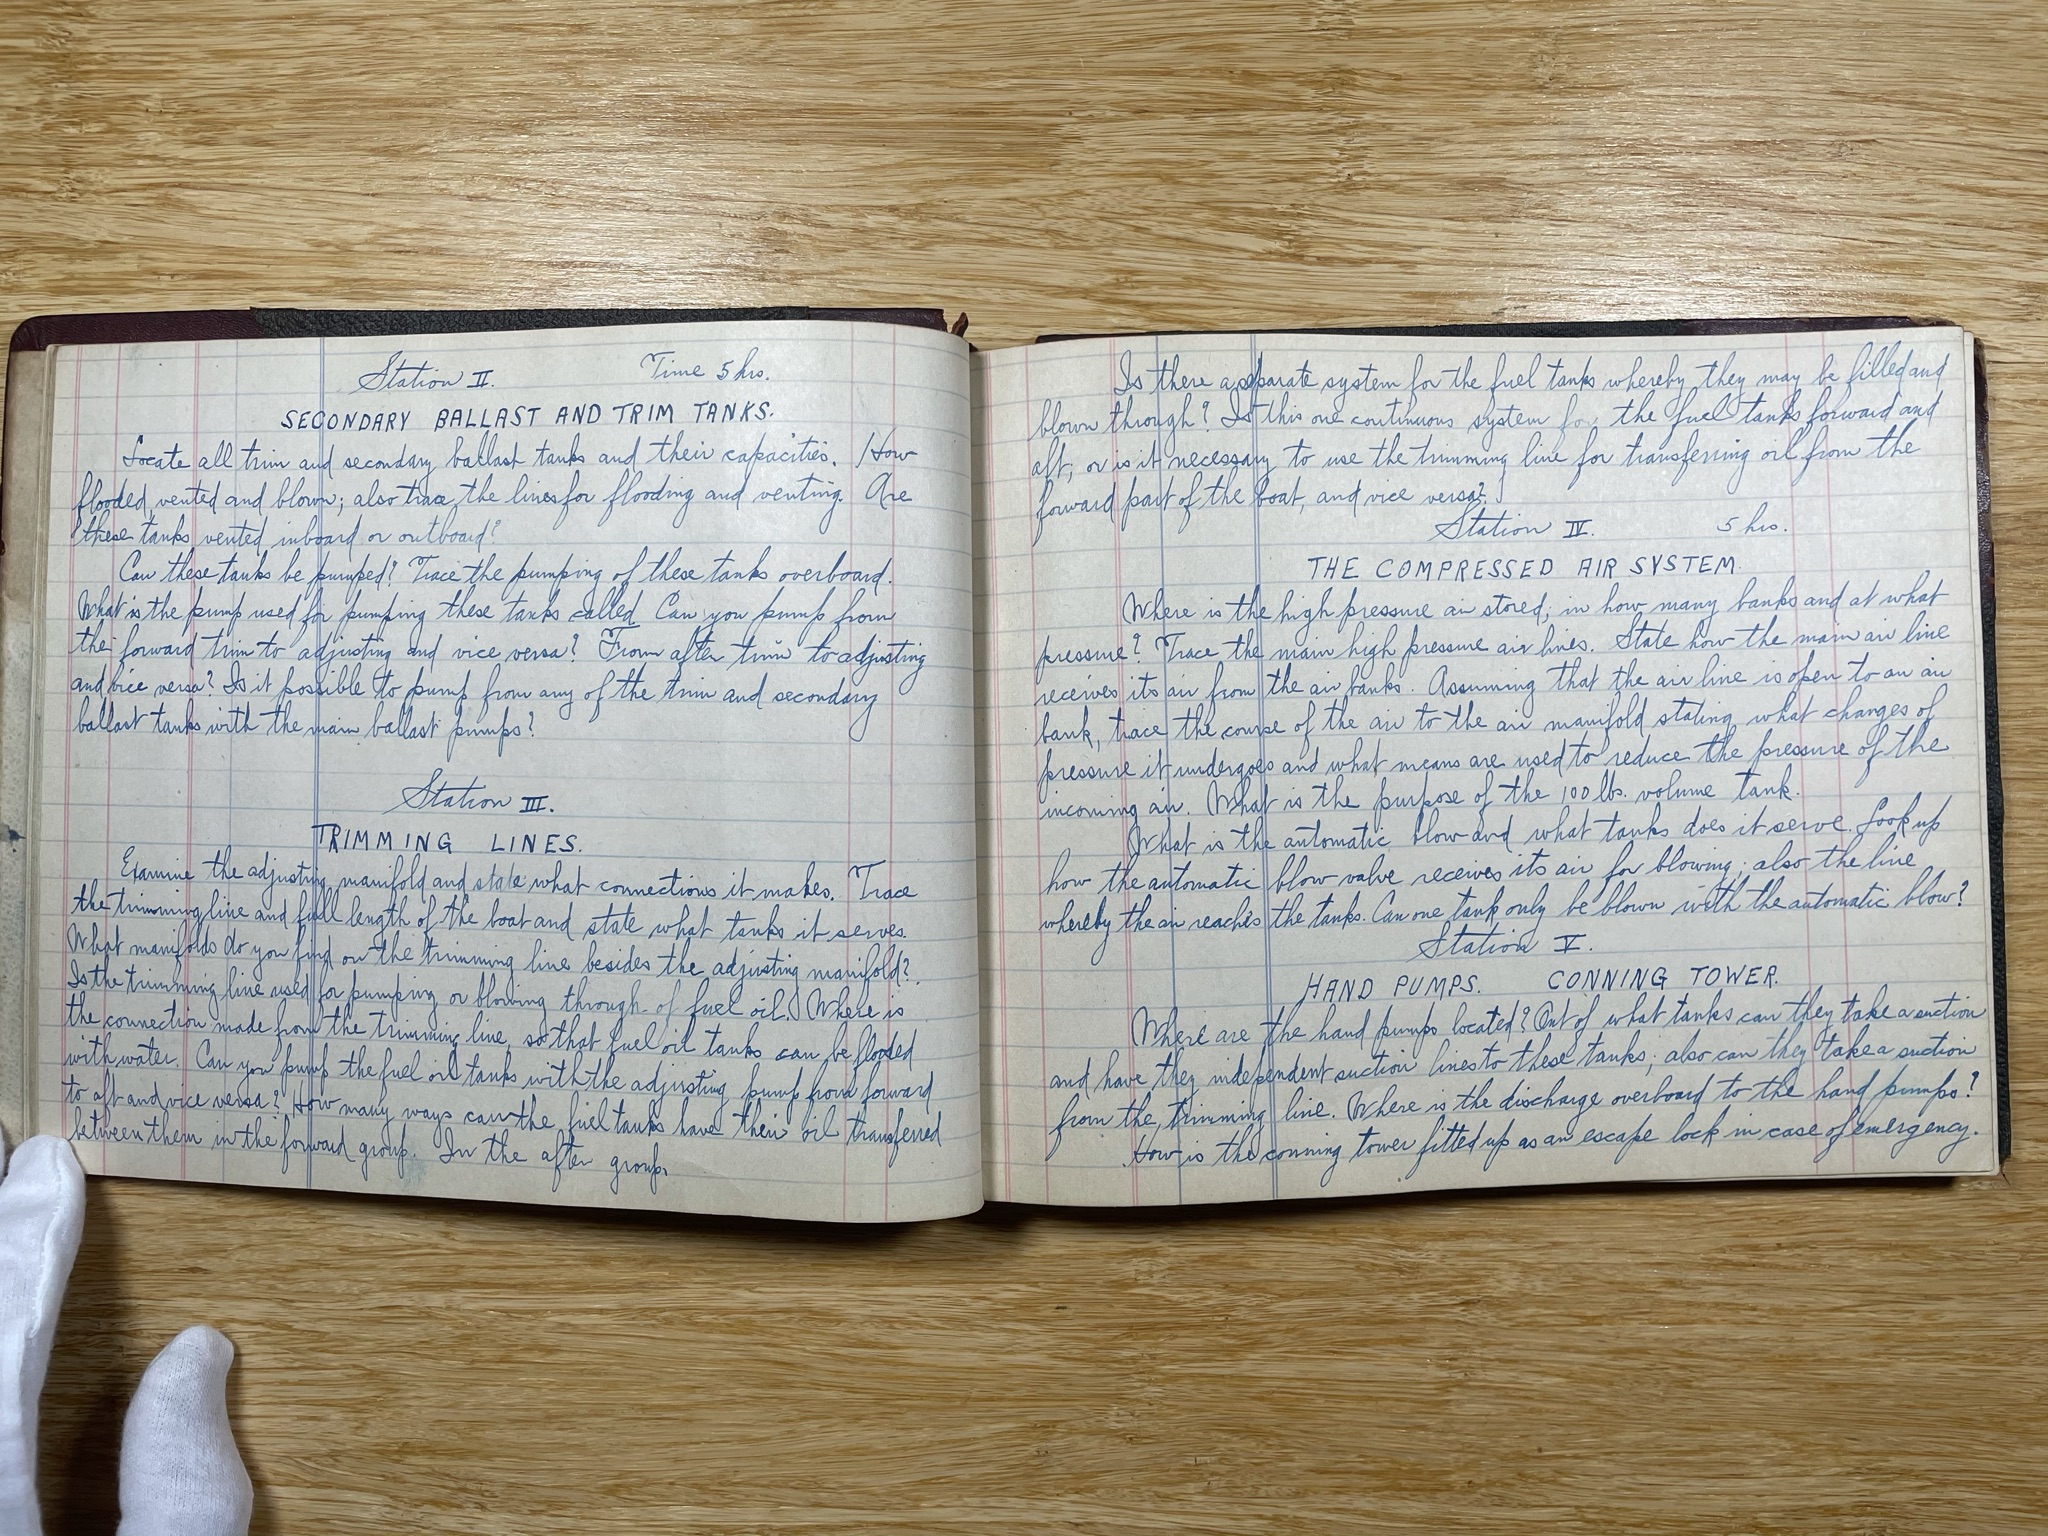 Station II. Time 5 hrs.
SECONDARY BALLAST AND TRIM TANKS.
Locate all trim and secondary ballast tanks and their capacities. How
flooded, vented and blown; also trace the lines for flooding and venting. Are
these tanks vented inboard or outboard?
Can these tanks be pumped? Trace the pumping of these tanks overboard.
What is the pump used for pumping these tanks called. Can you pump from
the forward trim to adjusting and vice versa? From after trim to adjusting
and vice versa? Is it possible to pump from any of the trim and secondary
ballast tanks with the main ballast pumps?
Station III.
TRIMMING LINES.
Examine the adjusting manifold and state what connections it makes. Trace
the trimming line and full length of the boat and state what tanks it serves.
What manifolds do you find on the trimming line besides the adjusting manifold?
Is the trimming line used for pumping or blowing through of fuel oil. Where is
the connection made from the trimming line, so that fuel oil tanks can be flooded
with water. Can you pump the fuel oil tanks with the adjusting pump from forward
to aft and vice versa? How many ways can the fuel tanks have their oil transferred
between them in the forward group. In the after group.
Is there a separate system for the fuel tanks whereby they may be filled and
blown through? Is this one continuous system for the fuel tanks forward and
aft, or is it necessary to use the trimming line for transferring oil from the
forward part of the boat, and vice versa?
Station IV. 5 hrs.
THE COMPRESSED AIR SYSTEM.
Where is the high pressure air stored; in how many banks and at what
pressure? Trace the main high pressure air lines. State how the main air line
receives its air from the air banks. Assuming that the air line is open to an air
bank, trace the course of the air to the air manifold stating what changes of
pressure it undergoes and what means are used to reduce the pressure of the
incoming air. What is the purpose of the 100 lbs. volume tank.
What is the automatic blow and what tanks does it serve. Look up
how the automatic blow valve receives its air for blowing; also the line
whereby the air reaches the tanks. Can one tank only be blown with the automatic blow?
Station V.
HAND PUMPS. CONNING TOWER.
Where are the hand pumps located? Out of what tanks can they take a suction
and have they independent suction lines to these tanks; also can they take a suction
from the trimming line. Where is the discharge overboard to the hand pumps?
How is the conning tower fitted up as an escape lock in case of emergency.